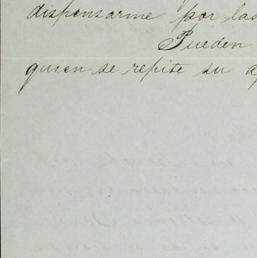 dispensarme por las
Pueden
quien se repite su